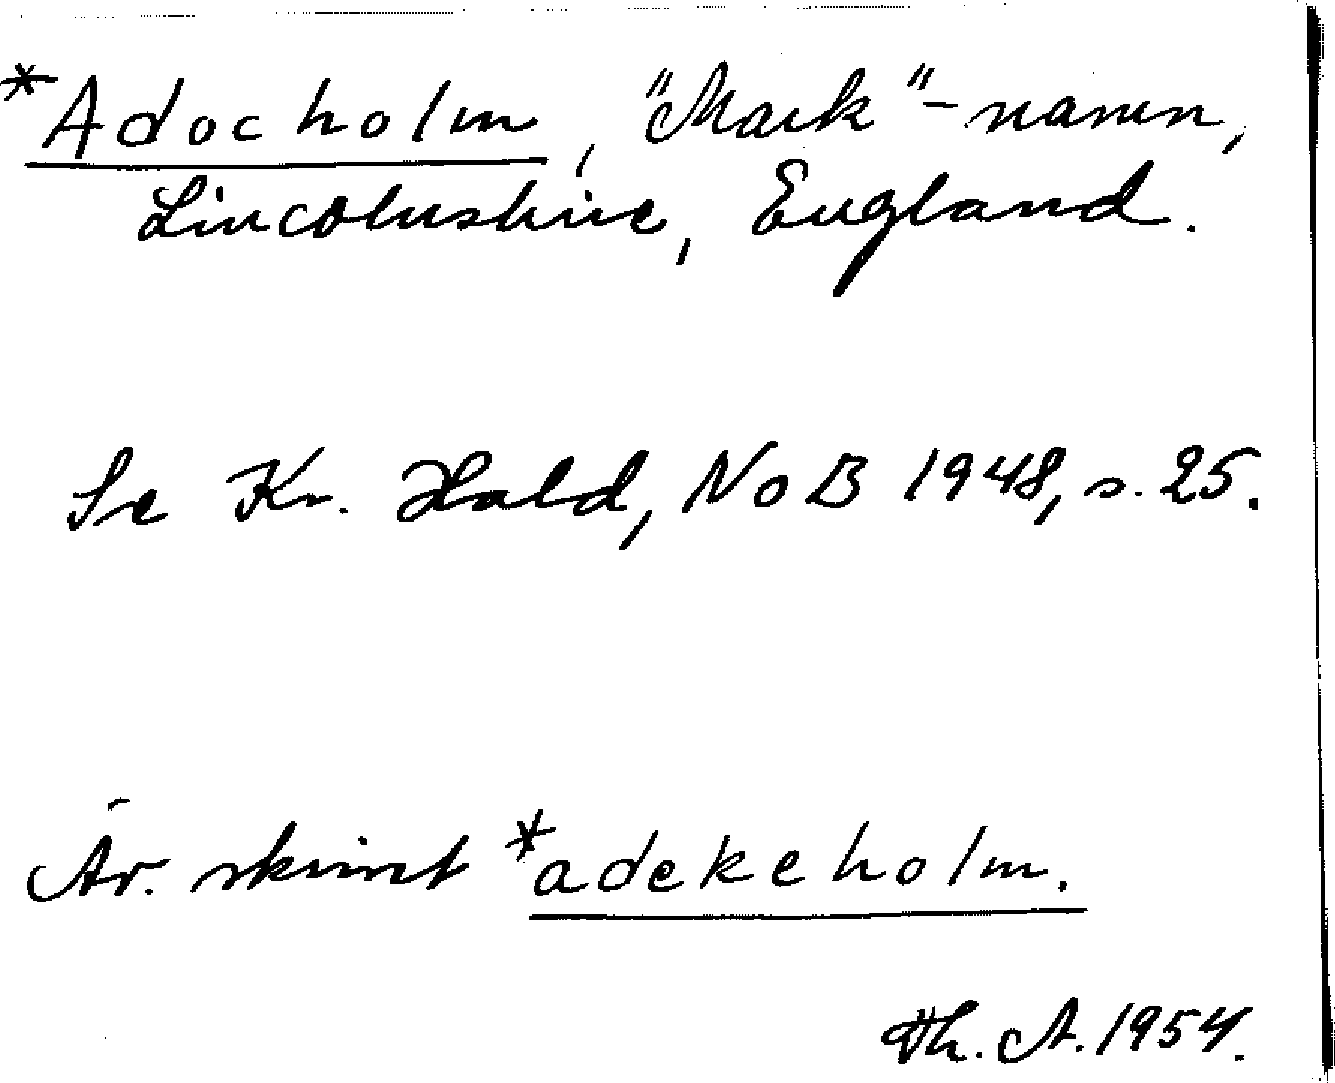 *Adocholm, "Mark"-namn,
Lincolnshire, England.
Se Kr. Hald, NoB 1948, s. 25.
Är. skrivet *adekeholm.
Th. A. 1954.